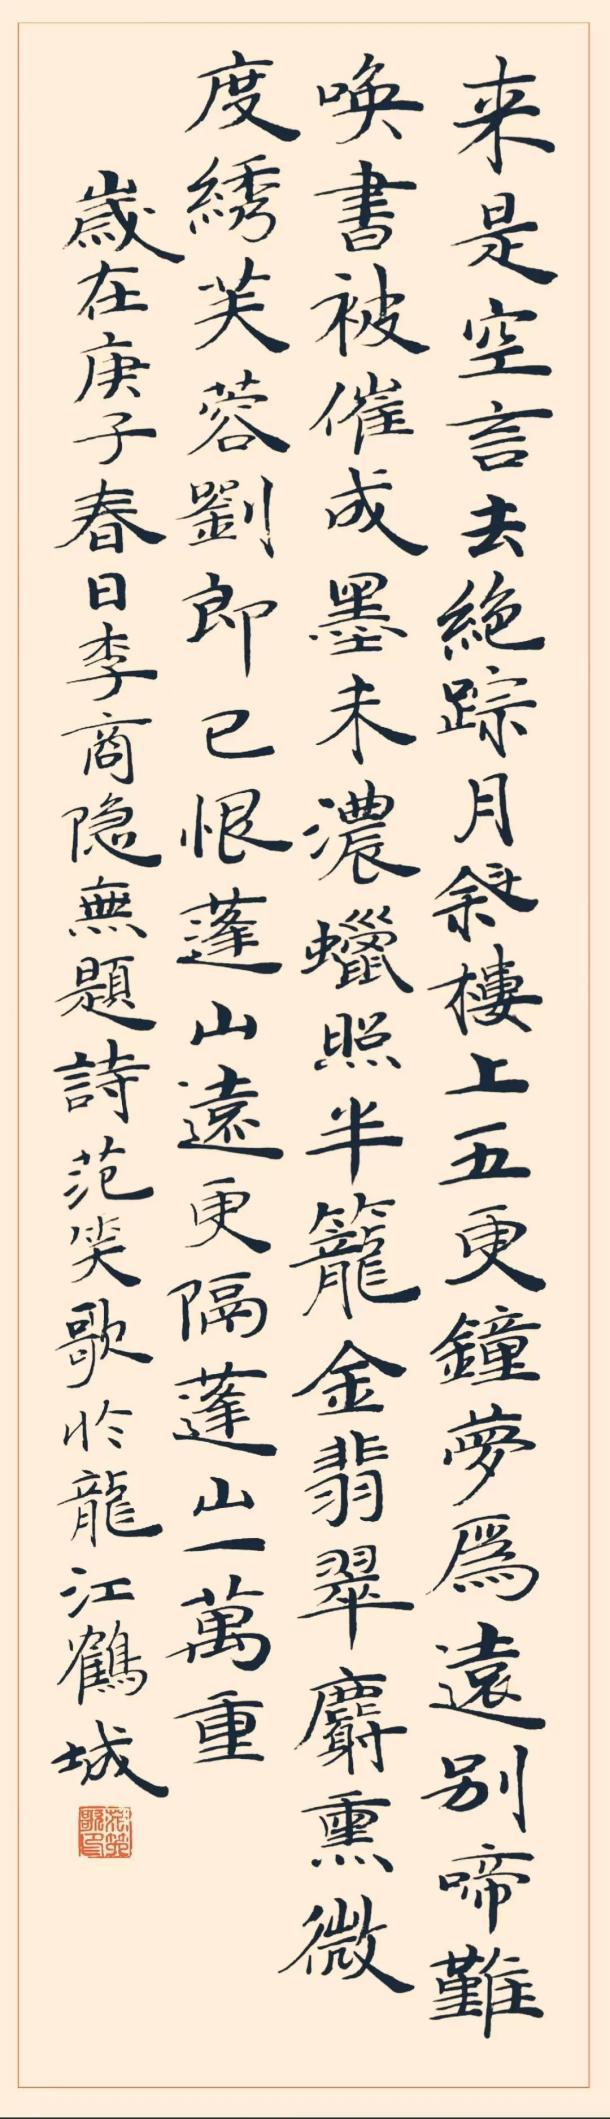 来是空言去絶踪月斜樓上五更鐘夢爲遠别啼難
喚書被催成墨未濃蠟照半籠金翡翠麝熏微
度綉芙蓉劉郎已恨蓬山遠更隔蓬山一萬重
歲在庚子春日李商隐無題詩范笑歌於龍江鶴城